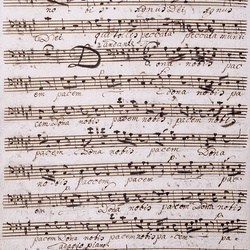 no bis agnus Dei agnus
Dei qui tollis peccata peccata mundi
Andante
Dona nobis pac
em pacem Dona nobis pa
cem Dona nobis pacem nobis pacem
pacem Dona nobis pacem Dona
nobis pacem pacem
pacem Dona nobis pacem nobis
pacem Dona nobis pacem nobis pacem